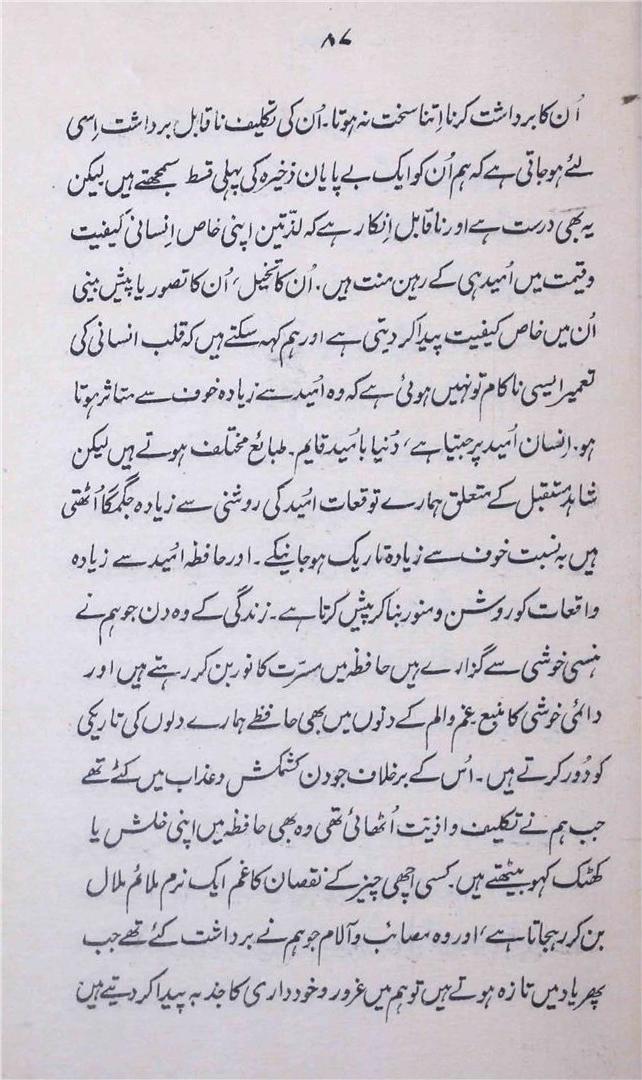 ۸۷
اُن کا برداشت کرنا اِتنا سخت نہ ہوتا۔ اُن کی تکلیف ناقابل برداشت اِسی
لئے ہو جاتی ہے کہ ہم اُن کو ایک بے پایان ذخیرہ کی پہلی قسط سمجھتے ہیں لیکن
یہ بھی درست ہے اور ناقابل اِنکار ہے کہ لذّتین اپنی خاص اِنسانی کیفیت
وقیمت میں اُمید ہی کے رہین منت ہیں۔ اُن کا تخیل، اُن کا تصور یا پیش بینی
اُن میں خاص کیفیت پیدا کر دیتی ہے اور ہم کہہ سکتے ہیں کہ قلب انسانی کی
تعمیر ایسی ناکام تو نہیں ہوئی ہے کہ وہ اُمید سے زیادہ خوف سے متاثر ہوتا
ہو۔ اِنسان اُمید پر جیتا ہے، دُنیا بااُمید قایم۔ طبائع مختلف ہوتے ہیں لیکن
شاہد مستقبل کے متعلق ہمارے توقعات اُمید کی روشنی سے زیادہ جگمگا اُٹھتی
ہیں بہ نسبت خوف سے زیادہ تاریک ہو جانیکے۔ اور حافظہ اُمید سے زیادہ
واقعات کو روشن و منور بنا کر پیش کرتا ہے۔ زندگی کے وہ دن جو ہم نے
ہنسی خوشی سے گزارے ہیں حافظہ میں مسرّت کا نور بن کر رہتے ہیں اور
دائمی خوشی کا منبع۔ غم و الم کے دنوں میں بھی حافظے ہمارے دلوں کی تاریکی
کو دُور کرتے ہیں۔ اُس کے برخلاف جو دن کشمکش و عذاب میں کٹے تھے
جب ہم نے تکلیف و اذیّت اُٹھائی تھی وہ بھی حافظہ میں اپنی خلش یا
کھٹک کھو بیٹھتے ہیں۔ کسی اچھی چیز کے نقصان کا غم ایک نرم ملائم ملال
بن کر رہجاتا ہے، اور وہ مصائب و آلام جو ہم نے برداشت کئے تھے جب
پھر یاد میں تازہ ہوتے ہیں تو ہم میں غرور و خودداری کا جذبہ پیدا کر دیتے ہیں